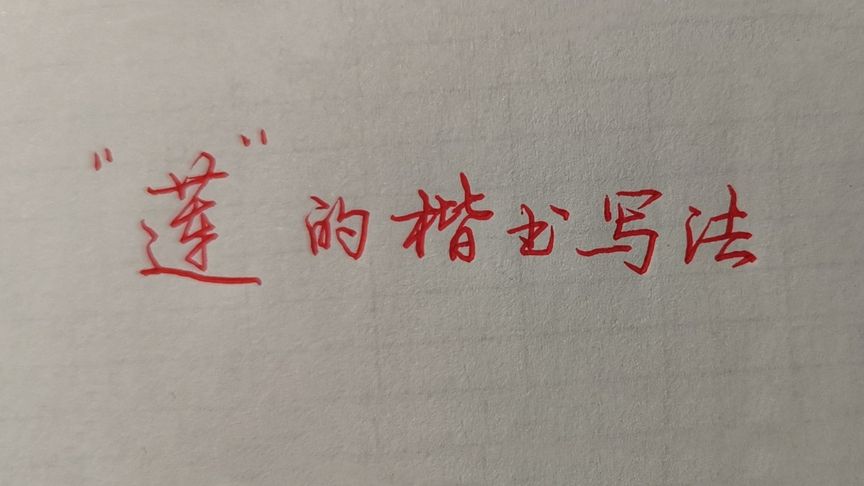 "莲"的楷书写法